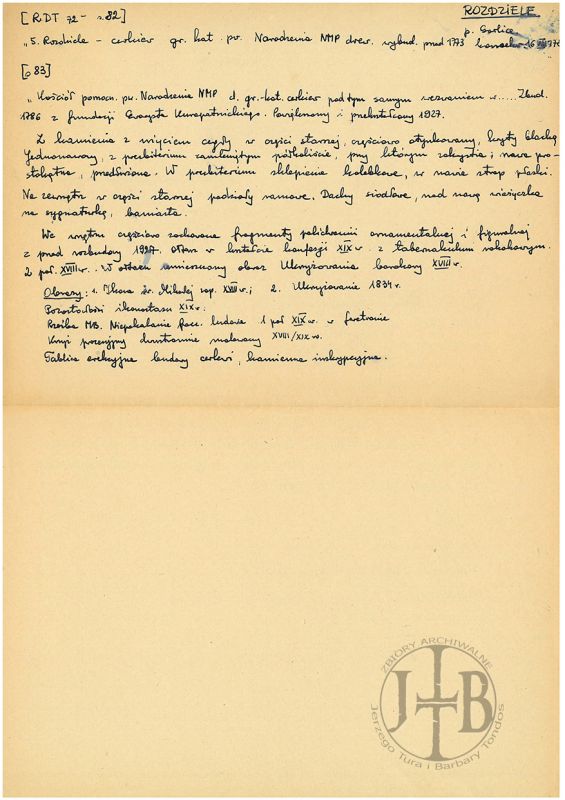 [R.DT 72 - s.82]
ROZDZIELE
p. Gorlice
"5. Rozdziele - cerkiew gr. kat. pw. Narodzenia NMP drew. wybud. przed 1773
[p 83]
"Kościół pomocn. pw. Narodzenia NMP d. gr.-kat. cerkiew pod tym samym wezwaniem w..... Zbud.
1786 z fundacji Ewarysta Kuropatnickiego. Powiększony i przekształcony 1927.
Z kamienia z użyciem cegły, w części starszej, częściowo otynkowany, kryty blachą
Jednonawowy, z prezbiterium zamkniętym półkoliście, przy którym zakrystia; nawa pro-
stokątna, przedsionek. W prezbiterium sklepienie kolebkowe, w nawie strop płaski.
Na zewnątrz w części starszej podziały ramowe. Dachy siodłowe, nad nawą wieżyczka
na sygnaturkę, baniasta.
We wnętrzu częściowo zachowane fragmenty polichromii ornamentalnej i figuralnej
z przed rozbudowy 1927. Ołtarz w kształcie konfesji XIX w. z tabernakulum rokokowym
2 poł. XVIII w. W ołtarzu umieszczony obraz Ukrzyżowania barokowy XVIII w.
Obrazy: 1. Ikona św. Mikołaj zap. XVII w.; 2. Ukrzyżowanie 1834 r.
Pozostałości ikonostasu XIX w.
Rzeźba MB. Niepokalanie Pocz. ludowa 1 poł XIX w. w feretronie
Krzyż procesyjny dwustronnie malowany XVIII/XIX w.
Tablica erekcyjna budowy cerkwi, kamienna inskrypcyjna.
ZBIORY ARCHIWALNE
JTB
Jerzego Tura i Barbary Tondos